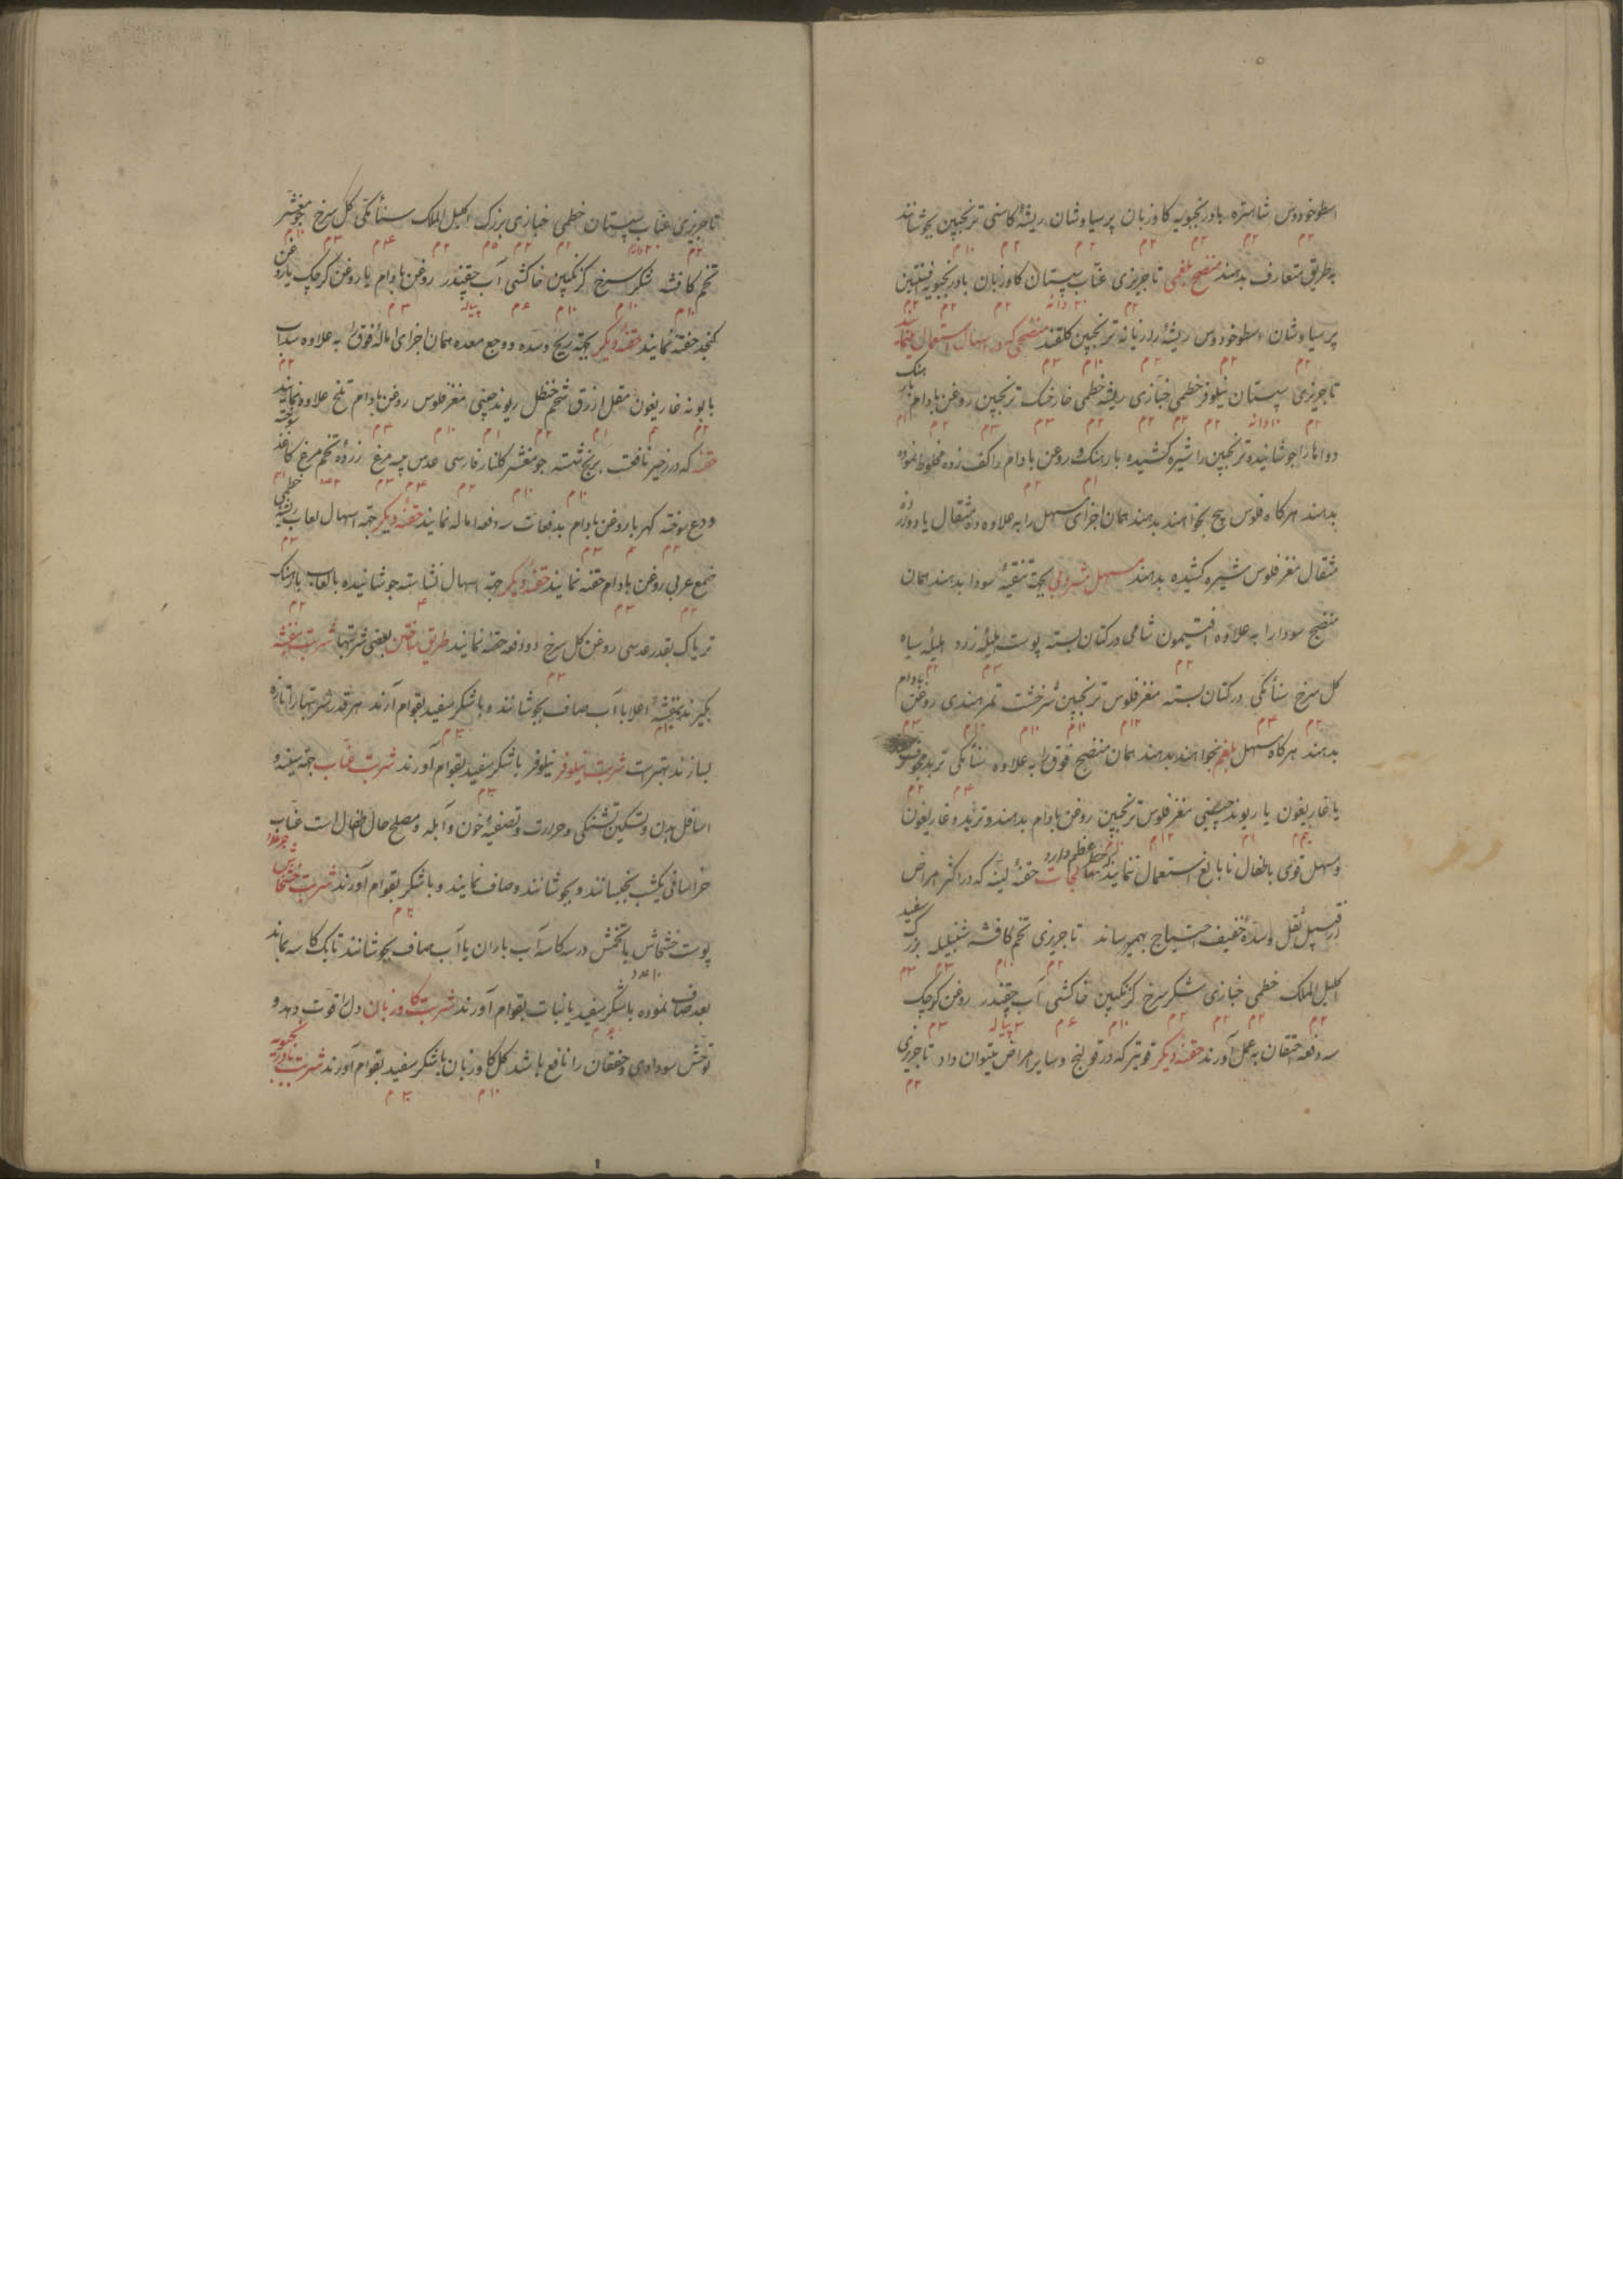 اسطوخودوس شاهتره بادرنجبویه کاوزبان پرسیاوشان ریشهٔ کاسنی ترنجبین بجوشانند
۲م ۲م ۲م ۲م ۲م ۲م ۱۰م
به طریق متعارف بدهند منضج بلغمی تاجریزی عناب سپستان کاوزبان بادرنجبویه افسنتین
پرسیاوشان اسطوخودوس ریشهٔ رازیانه ترنجبین کلقند منضجی که در اسهال استعمال نمایند
تاجریزی سپستان نیلوفر خطمی خبازی ریشه خطمی خارخسک ترنجبین روغن بادام بارهنک
دواها را جوشانیده ترنجبین را شیره کشیده بارهنک و روغن بادام را کف زده مخلوط نموده
بدهند هرکاه فلوس پیچ بخواهند بدهند همان اجزای مسهل را به علاوه ده مثقال یا دوازده
مثقال مغز فلوس شیره کشیده بدهند مسهل مشروبی بجهت تنقیهٔ سودا بدهند همان
منضج سودا را به علاوه افتیمون شامی در کتان بسته پوست هلیلهٔ زرد هلیلهٔ سیاه
کل سرخ سنأمکی در کتان بسته مغز فلوس ترنجبین شرخشت تمرهندی روغن بادام
بدهند هرکاه مسهل بلغم بخواهند بدهند همان منضج فوق را به علاوه سنأمکی تربد مجوف
یا غاریقون یا ریوند چینی مغز فلوس ترنجبین روغن بادام بدهند و تربد و غاریقون
و مسهل قوی باطفال نابالغ استعمال ننمایند که خطر عظیم دارد حقنهٔ لینه که در اکثر امراض
از قبیل ثقل و سدهٔ خفیف احتیاج بهم رساند تاجریزی تخم کافشه شنبلیله بزرک سفید
اکلیل الملک خطمی خبازی شکر سرخ کزنکبین خاکشی آب چقندر روغن کرچک
۲م ۲م ۲م ۲م ۱۰م ۶م ۳ پیاله ۳م
سه دفعه احتقان به عمل آورند حقنهٔ دیکر قویتر که در قولنج و سایر امراض میتوان داد تاجریزی
۲م
تاجریزی عناب سپستان خطمی خبازی بزرک اکلیل الملک سنأمکی کل سرخ جو مقشر
تخم کافشه شکر سرخ کزنکبین خاکشی آب چقندر روغن بادام یا روغن کرچک یا روغن
۱۰م ۱۰م ۱۰م ۶م پیاله ۳م
کنجد حقنه نمایند حقنهٔ دیکر بجهة ریح و سده و وجع معده همان اجزای امالهٔ فوق را به علاوه سداب
بابونه غاریقون مقل ازرق شحم حنظل ریوند چینی مغز فلوس روغن بادام تلخ علاوه نمایند
حقنه که در زحیر نافعست برنج شسته جو مقشر کلنار فارسی عدس پیه مرغ زردهٔ تخم مرغ کاغذ سوخته
ودع سوخته کهربا روغن بادام بدفعات سه دفعه اماله نمایند حقنهٔ دیکر جهة اسهال لعاب ریشه خطمی
صمغ عربی روغن بادام حقنه نمایند حقنهٔ دیکر جهة اسهال نشاسته جوشانیده با لعاب بارهنک
تریاک بقدر عدسی روغن کل سرخ دو دفعه حقنه نمایند طریق ساختن بعضی شربتها شربت بنفشه
بکیرند بنفشهٔ اعلا با آب صاف بجوشانند و با شکر سفید بقوام آرند هر قدر شربتها را تازه
بسازند بهتر است شربت نیلوفر نیلوفر با شکر سفید بقوام آورند شربت عناب جهة سینه و
اسافل بدن و تسکین تشنکی و حرارت و تصفیهٔ خون و آبله و مصلح حال اطفال است عناب
خراسانی یکشب بخیسانند و بجوشانند و صاف نمایند و با شکر بقوام آورند شربت خشخاش
پوست خشخاش با تخمش در سه کاسه آب باران یا آب صاف بجوشانند تا یک کاسه بماند
۱۰ عدد
بعد صاف نموده با شکر سفید یا نبات بقوام آورند شربت کاوزبان دل را قوت دهد و
توحش سوداوی و خفقان را نافع باشد کل کاوزبان با شکر سفید بقوام آورند شربت بادرنجبویه